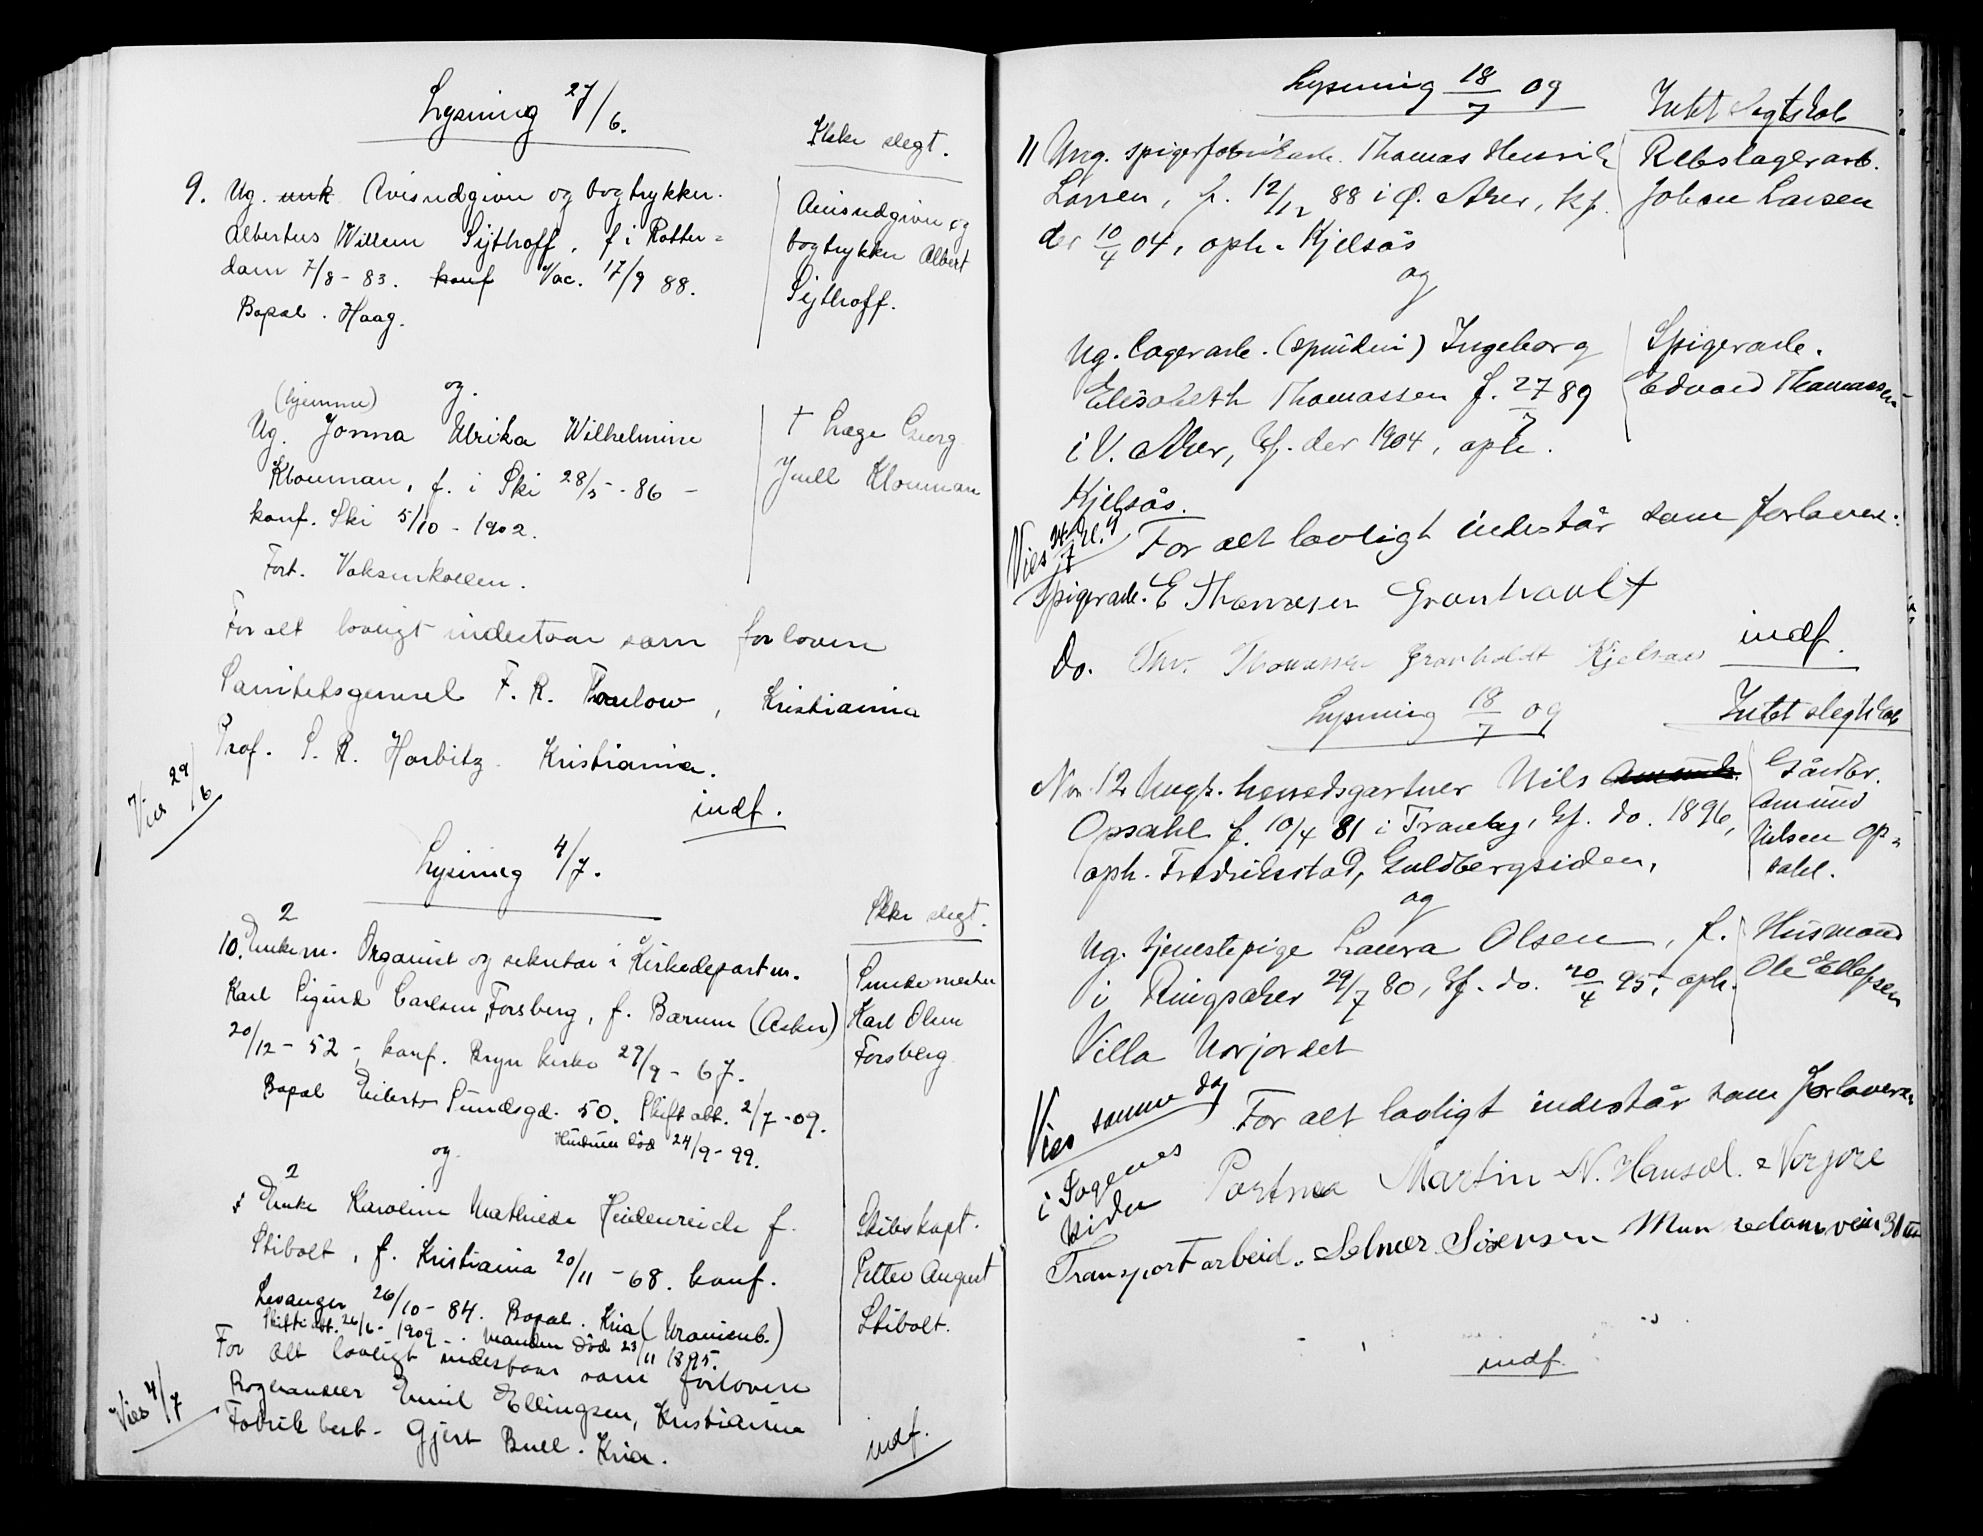 Lysning 27/6.
Ikke slegt.
9. Ug. Avisudgiver og bogtrykker
Albertus Willem Sijthoff, f. i Rotter=
dam 7/8 - 83. konf Vac. 17/9 88.
Bopæl. Haag.
Avisudgiver og
bogtrykker Albert
Sijthoff.
og.
(hjemme)
Ug. Jonna Ulrika Wilhelmine
Klouman, f. i Ski 28/5 - 86 -
konf. Ski 5/10 - 1902.
Fort. Voksenkollen.
† Læge Georg
Juell Klouman
For alt lovligt indestaar som forlovere
Sanitetsgeneral F. R. Thaulow, Kristiania
Prof. Harbitz. Kristiania.
Vies 29/6
indf.
Lysning 4/7.
Ikke slegt.
2
10. Enkem. Organist og sekretær i Kirkedepartm.
Karl Sigurd Carlsen Forsberg, f. Bærum (Asker)
20/12 - 52 - konf. Bryn kirke 29/9 - 67.
Bopæl Eilerts Sundsgd. 50. Skifteatt. 2/7 - 09.
Hustruen död 24/9 - 99.
Karl Olsen
Forsberg.
og.
2
Enke Karoline Mathilde Heidenreich f.
Stibolt, f. Kristiania 20/11 - 68. konf.
26/10 - 84. Bopæl. Kria (Uranienb.)
Skifteatt. 26/6 - 1909 - Manden död 23/11 1895.
Skibskapt.
Petter August
Stibolt.
For alt lovligt indestaar som forlovere
Emil Ellingsen, Kristiania
Fabrikbest. Gjert Bull. Kria.
Vies 4/7
indf.
Lysning 18/7 09
Intet slegtskab
11 Ung. spigerfabrikarb. Thomas Henrik
Larsen, f. 12/12 88 i Ø. Aker, kf.
der 10/4 04, oph. Kjelsås
Rebslagerarb.
Johan Larsen
og
Ug. lagerarb. Ingeborg
Elisabeth Thomassen f. 27/7 89
i V. Aker, kf. der 1904, oph.
Kjelsås.
Spigerarb.
Edvard Thomassen
Vies
For alt lovligt indestår som forlovere:
Spigerarb. E Thomesen Granholt
Do. Thv. Thomassen Granholdt Kjelsaas
indf.
Lysning 18/7 09
Intet slegtskab
No. 12 Ungk. herredsgartner Nils
Opsahl f. 10/4 81 i Tranby, kf. do. 1896,
oph. Fredrikstad, Guldbergsiden,
Gårdbr.
Amund
Nilsen Op=
sahl.
og
Ug. tjenestepige Laura Olsen, f.
i Ringsaker 29/7 80, kf. do. 20/4 95, oph.
Villa Norjordet
Husmand
Ole Ellefsen
Vies samme dag
i Sogenes
kirke
For alt lovligt indestår som forlovere:
Portner Martin N. Hansel. Norjore
Transportarbeid. Selmer Sörensen Munkedamsveien
indf.